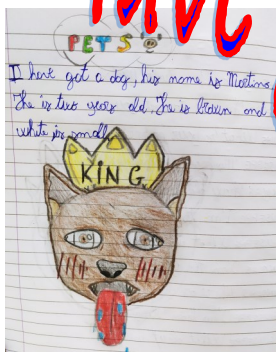 PETS
I have got a dog, his name is Martins
She is two years old. She is brown and
white is small
KING